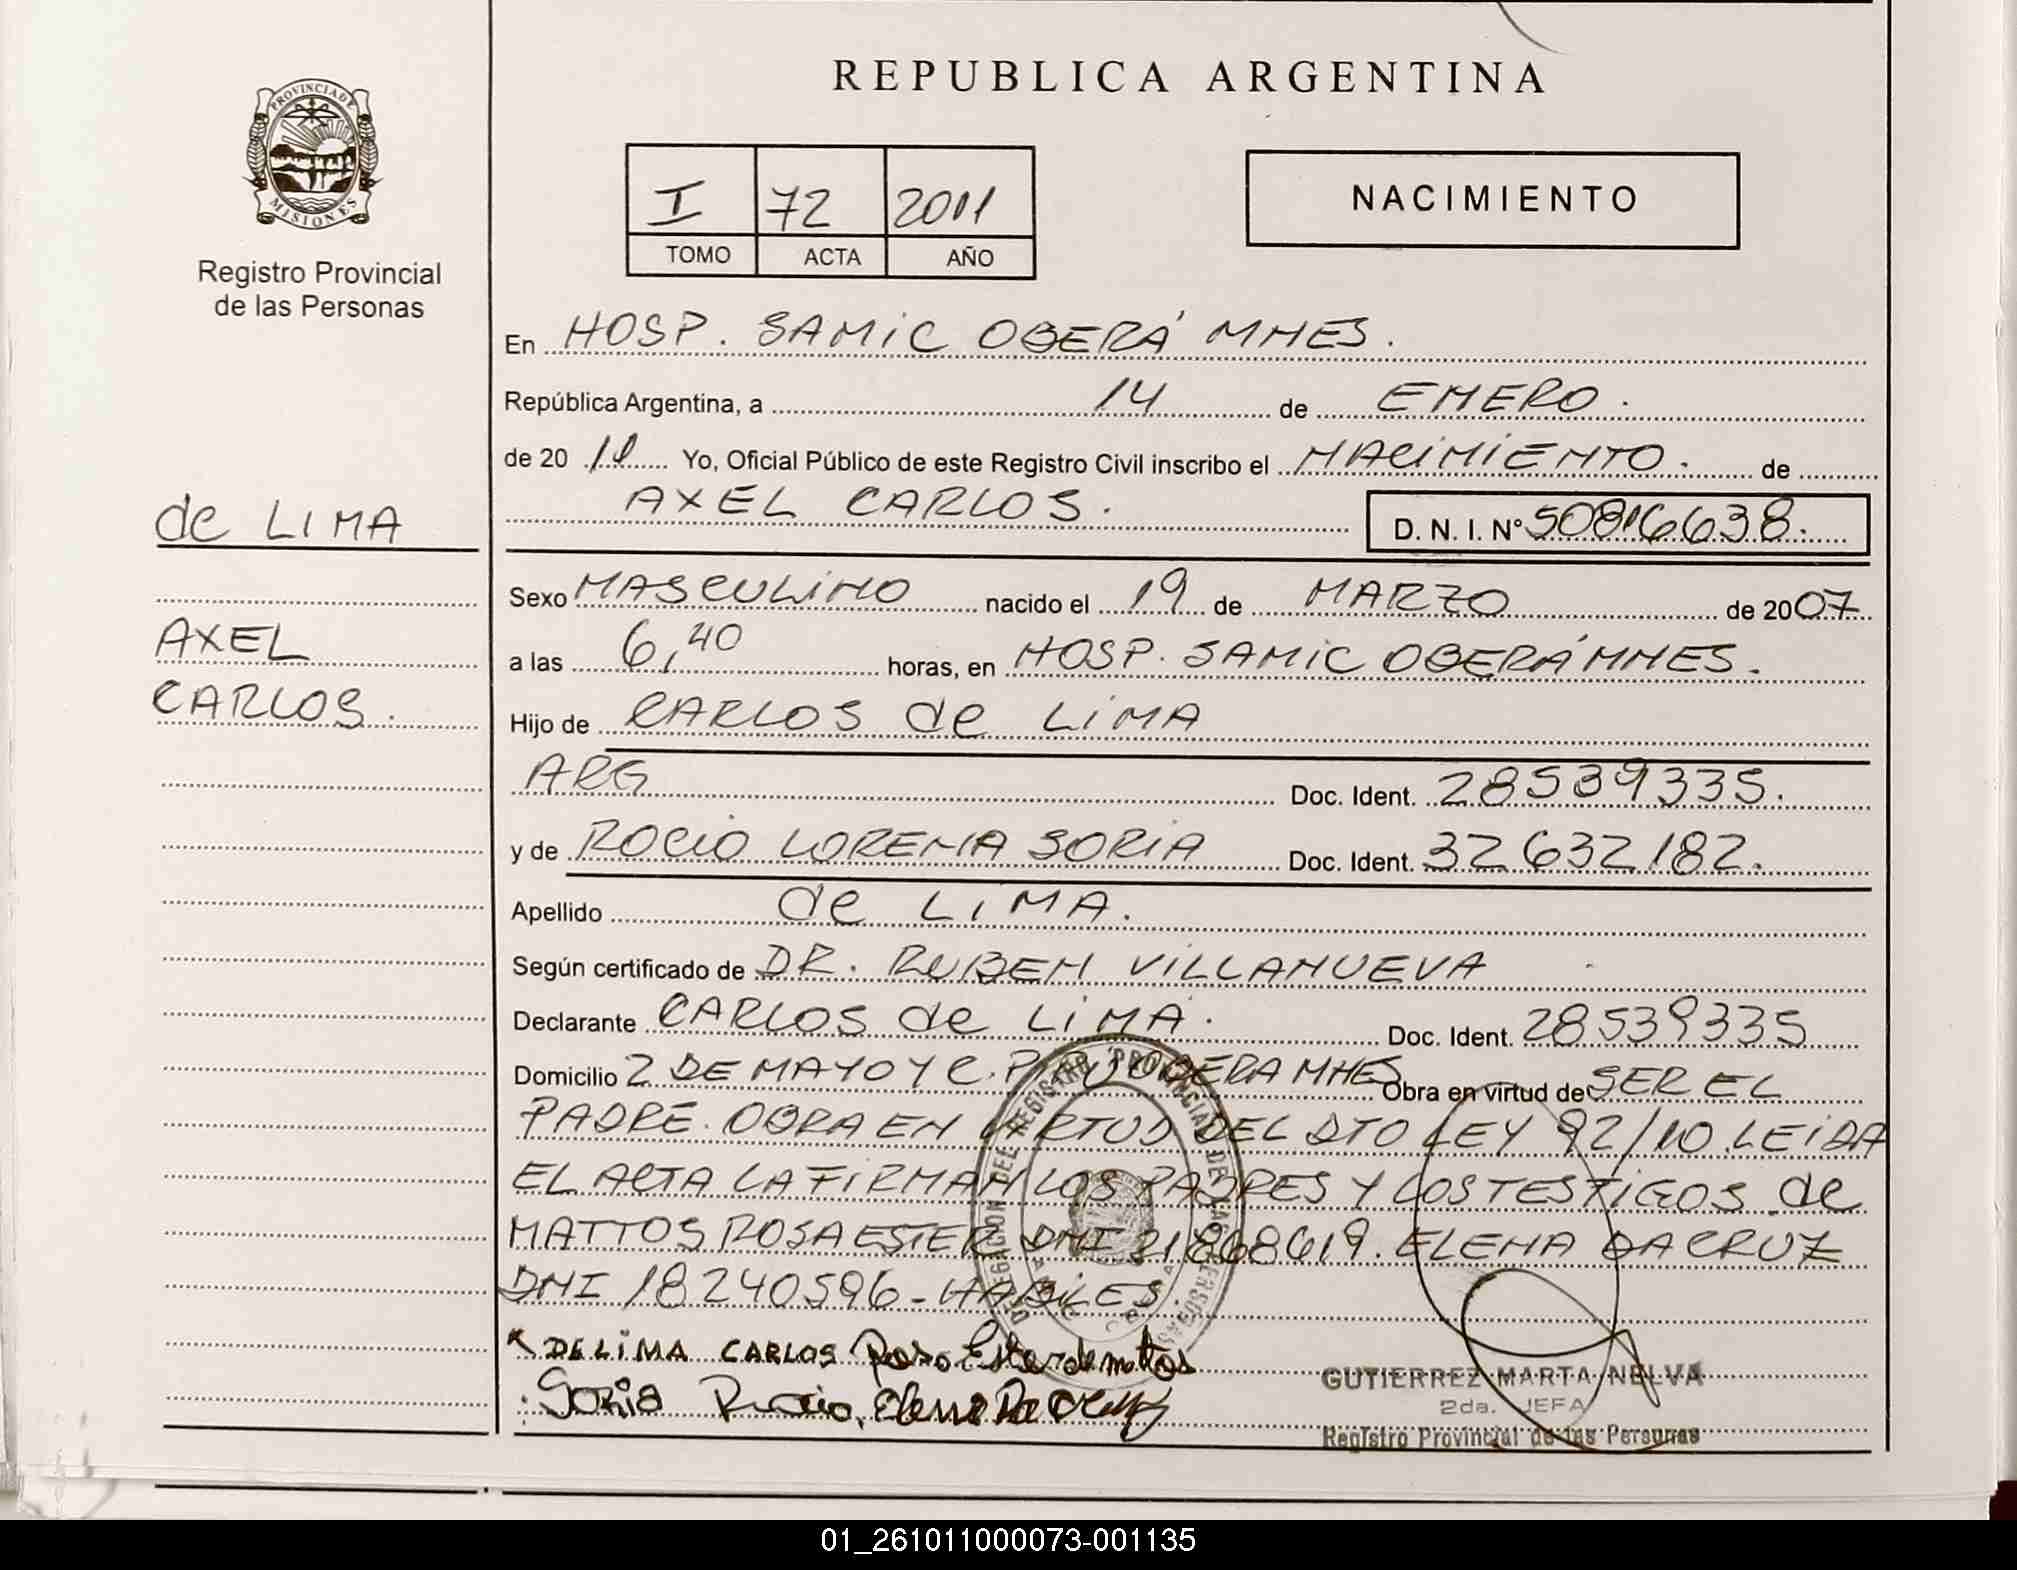 REPUBLICA ARGENTINA
PROVINCIA DE
MISIONES
Registro Provincial
de las Personas
I 72 2011
TOMO ACTA AÑO
NACIMIENTO
En HOSP. SAMIC OBERÁ MNES.
República Argentina, a 14 de ENERO.
de 20 11 Yo, Oficial Público de este Registro Civil inscribo el NACIMIENTO. de
AXEL CARLOS. D. N. I. Nº 50816638.
de LIMA
AXEL
CARLOS.
Sexo MASCULINO nacido el 19 de MARZO de 2007
a las 6,40 horas, en HOSP. SAMIC OBERÁ MNES.
Hijo de CARLOS de LIMA
ARG Doc. Ident. 28539335.
y de ROCIO LORENA SORIA Doc. Ident. 32632182.
Apellido de LIMA.
Según certificado de DR. RUBEN VILLANUEVA
Declarante CARLOS de LIMA. Doc. Ident. 28539335
Domicilio 2 DE MAYO Y C. OBERA MNES Obra en virtud de SER EL
PADRE. OBRA EN VIRTUD DEL DTO LEY 92/10. LEIDA
EL ACTA LA FIRMAN LOS PADRES Y LOS TESTIGOS de
MATTOS ROSA ESTER DNI 21868619. ELENA DA CRUZ
DNI 18240596 - HABILES.
DELIMA CARLOS Rosa Ester de mattos
Soria Rocio, Elena Da Cruz
GUTIERREZ MARTA NELVA
2da. JEFA
Registro Provincial de las Personas
DELEGACION DEL REGISTRO PROVINCIAL DE LAS PERSONAS
01_261011000073-001135